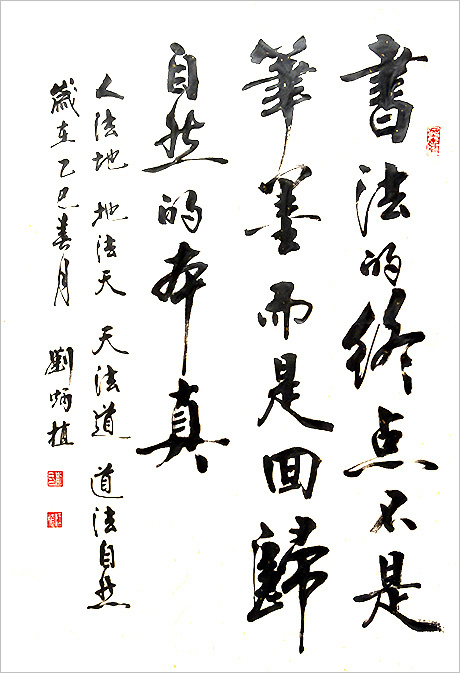 書法的終点不是
筆墨而是回歸
自然的本真
人法地 地法天 天法道 道法自然
歲在乙巳春月 劉炳植